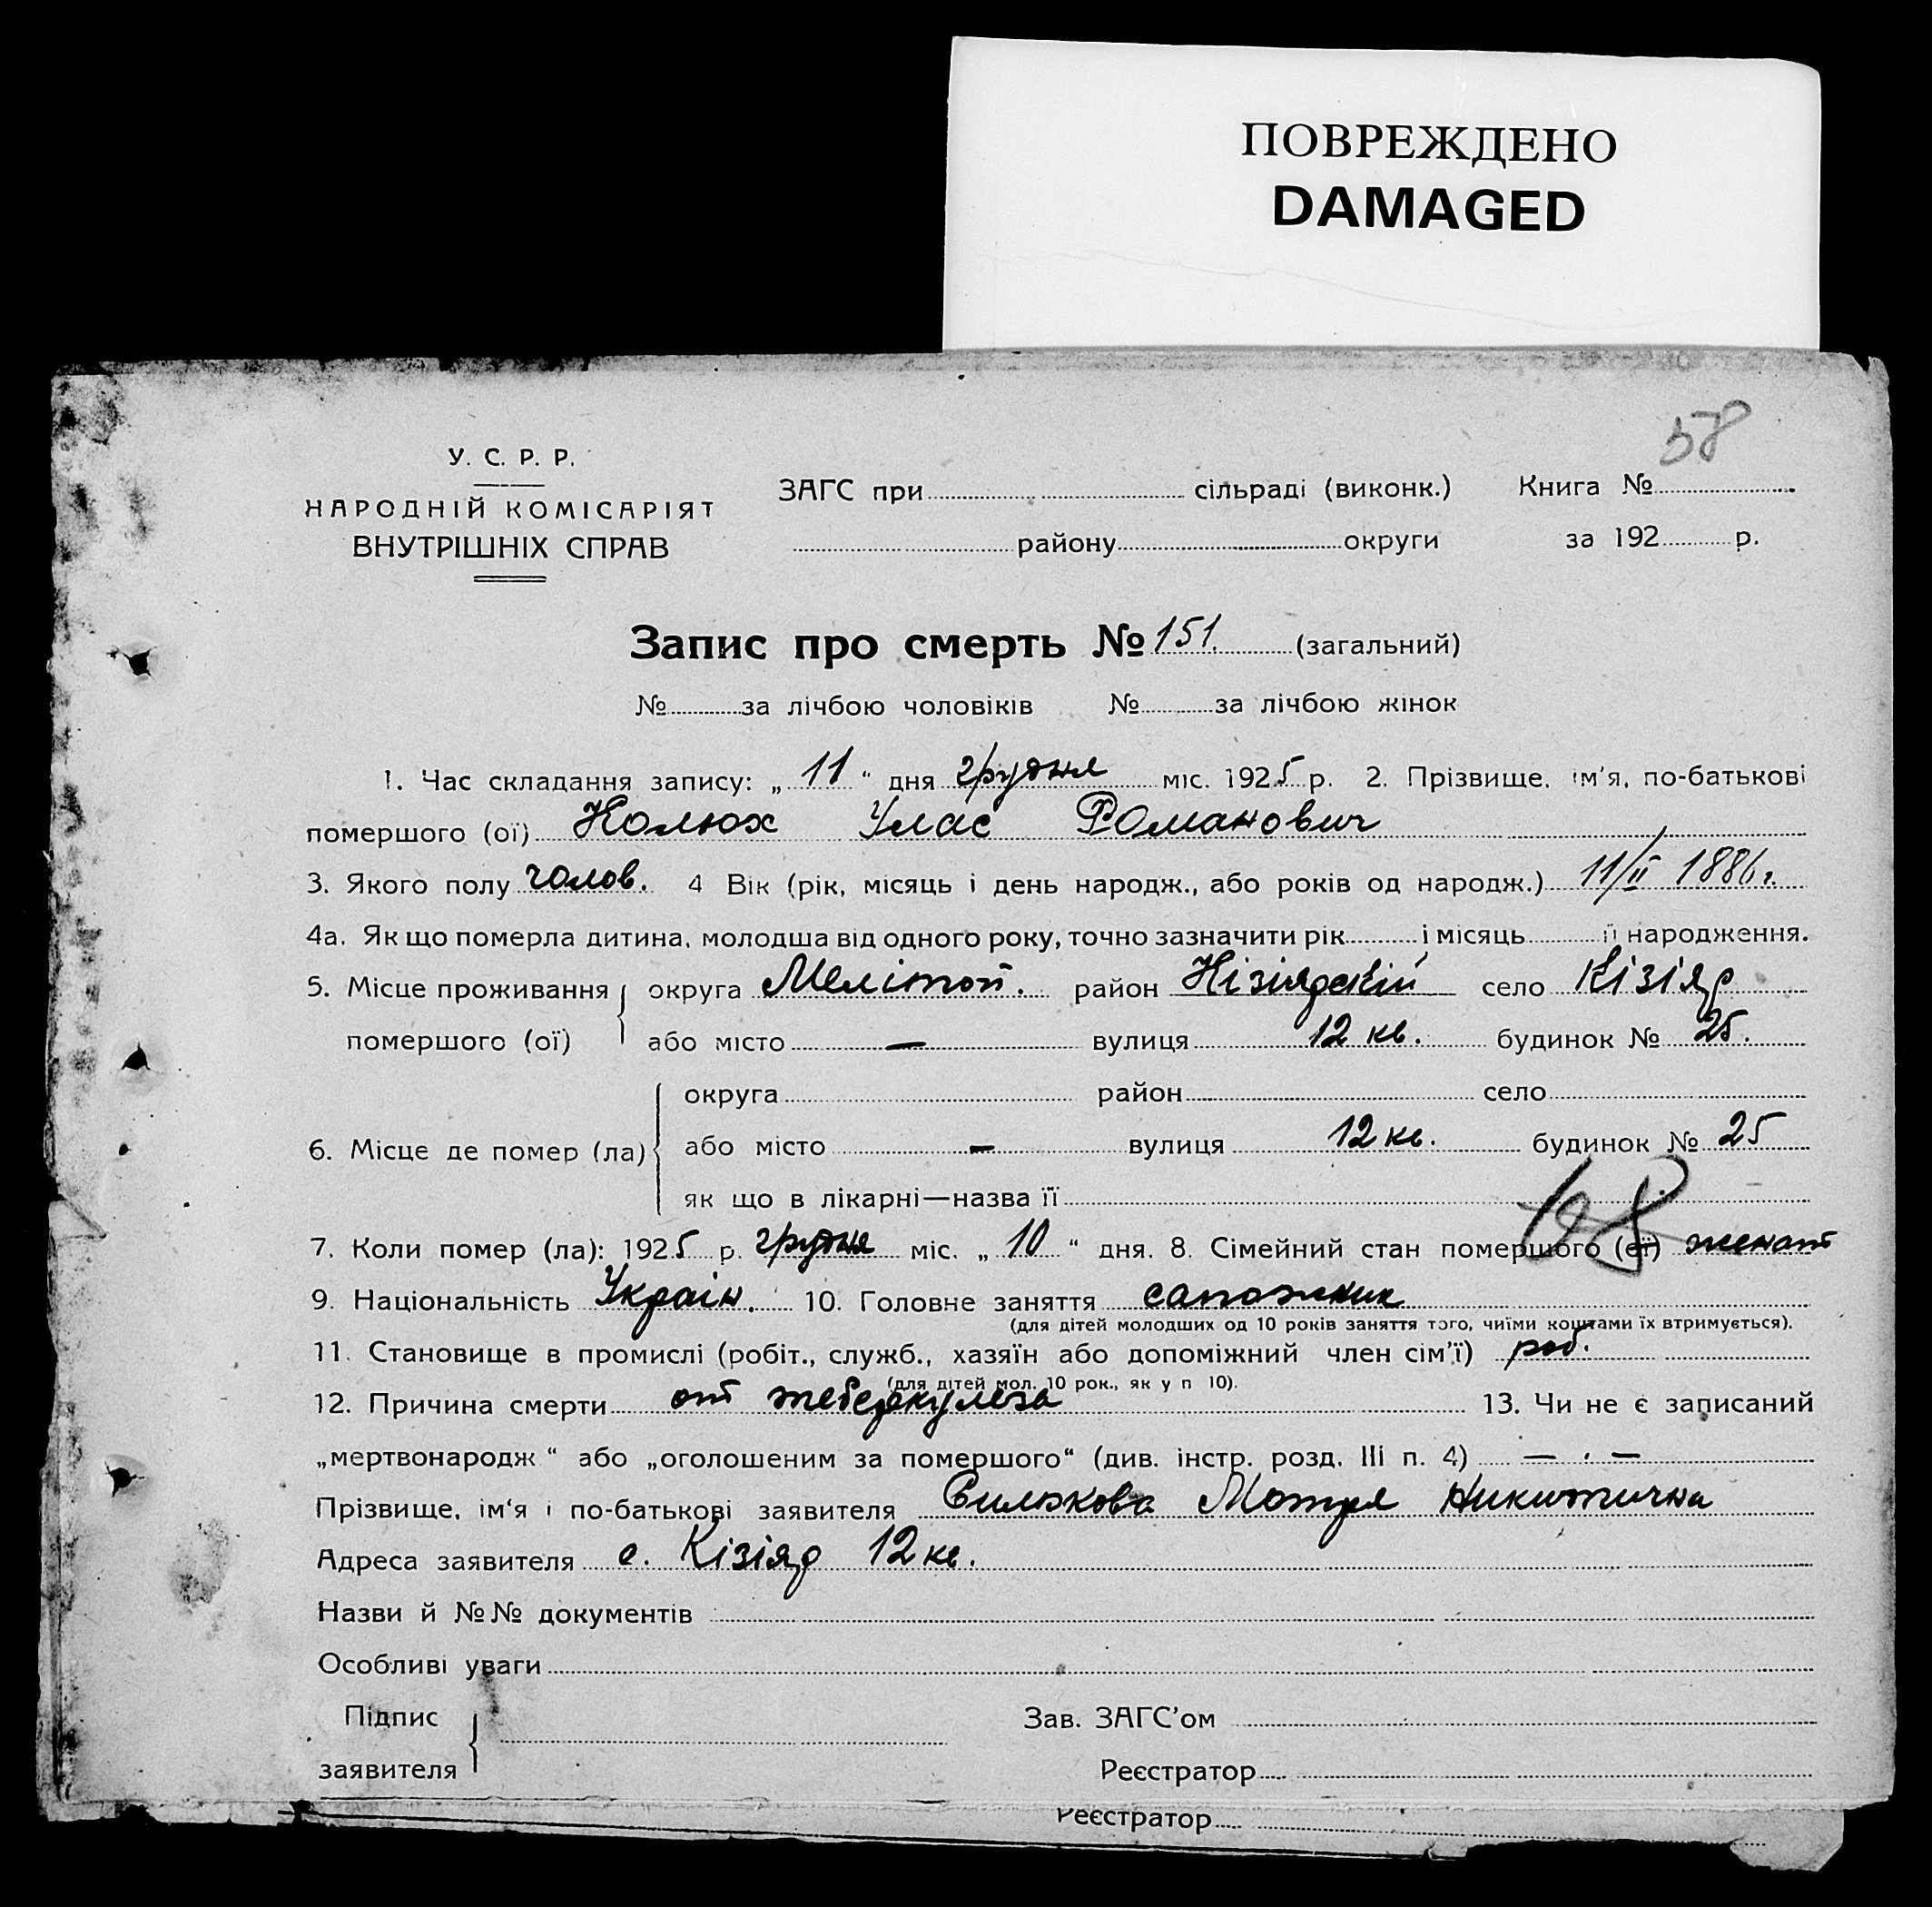 ПОВРЕЖДЕНО
DAMAGED
58
У. С. Р. Р.
НАРОДНІЙ КОМІСАРІЯТ
ВНУТРІШНІХ СПРАВ
ЗАГС при сільраді (виконк.) Книга №
району округи за 192 р.
Запис про смерть № 151. (загальний)
№ за лічбою чоловіків № за лічбою жінок
1. Час складання запису: „ 11 “ дня грудня міс. 1925 р. 2. Прізвище, ім'я, по-батькові
помершого (ої) Колюх Улас Романович
3. Якого полу чолов. 4 Вік (рік, місяць і день народж., або років од народж.) 11/II 1886 г.
4а. Як що померла дитина, молодша від одного року, точно зазначити рік і місяць її народження.
5. Місце проживання помершого (ої) округа Мелітоп. район Кізіярскій село Кізіяр
або місто — вулиця 12 кв. будинок № 25.
6. Місце де помер (ла) округа район село
або місто — вулиця 12 кв. будинок № 25
як що в лікарні—назва її
7. Коли помер (ла): 1925 р. грудня міс. „ 10 “ дня. 8. Сімейний стан помершого (ої) женат
9. Національність Україн. 10. Головне заняття сапожник
(для дітей молодших од 10 років заняття того, чиїми коштами їх втримується).
11. Становище в промислі (робіт., служб., хазяїн або допоміжний член сім'ї) роб.
(для дітей мол. 10 рок., як у п 10).
12. Причина смерти от теберкулеза 13. Чи не є записаний
„мертвонародж “ або „оголошеним за помершого“ (див. інстр. розд. III п. 4) — . —
Прізвище, ім'я і по-батькові заявителя Мотря Никитична
Адреса заявителя с. Кізіяр 12 кв.
Назви й №№ документів
Особливі уваги
Підпис заявителя
Зав. ЗАГС'ом
Реєстратор
Реєстратор